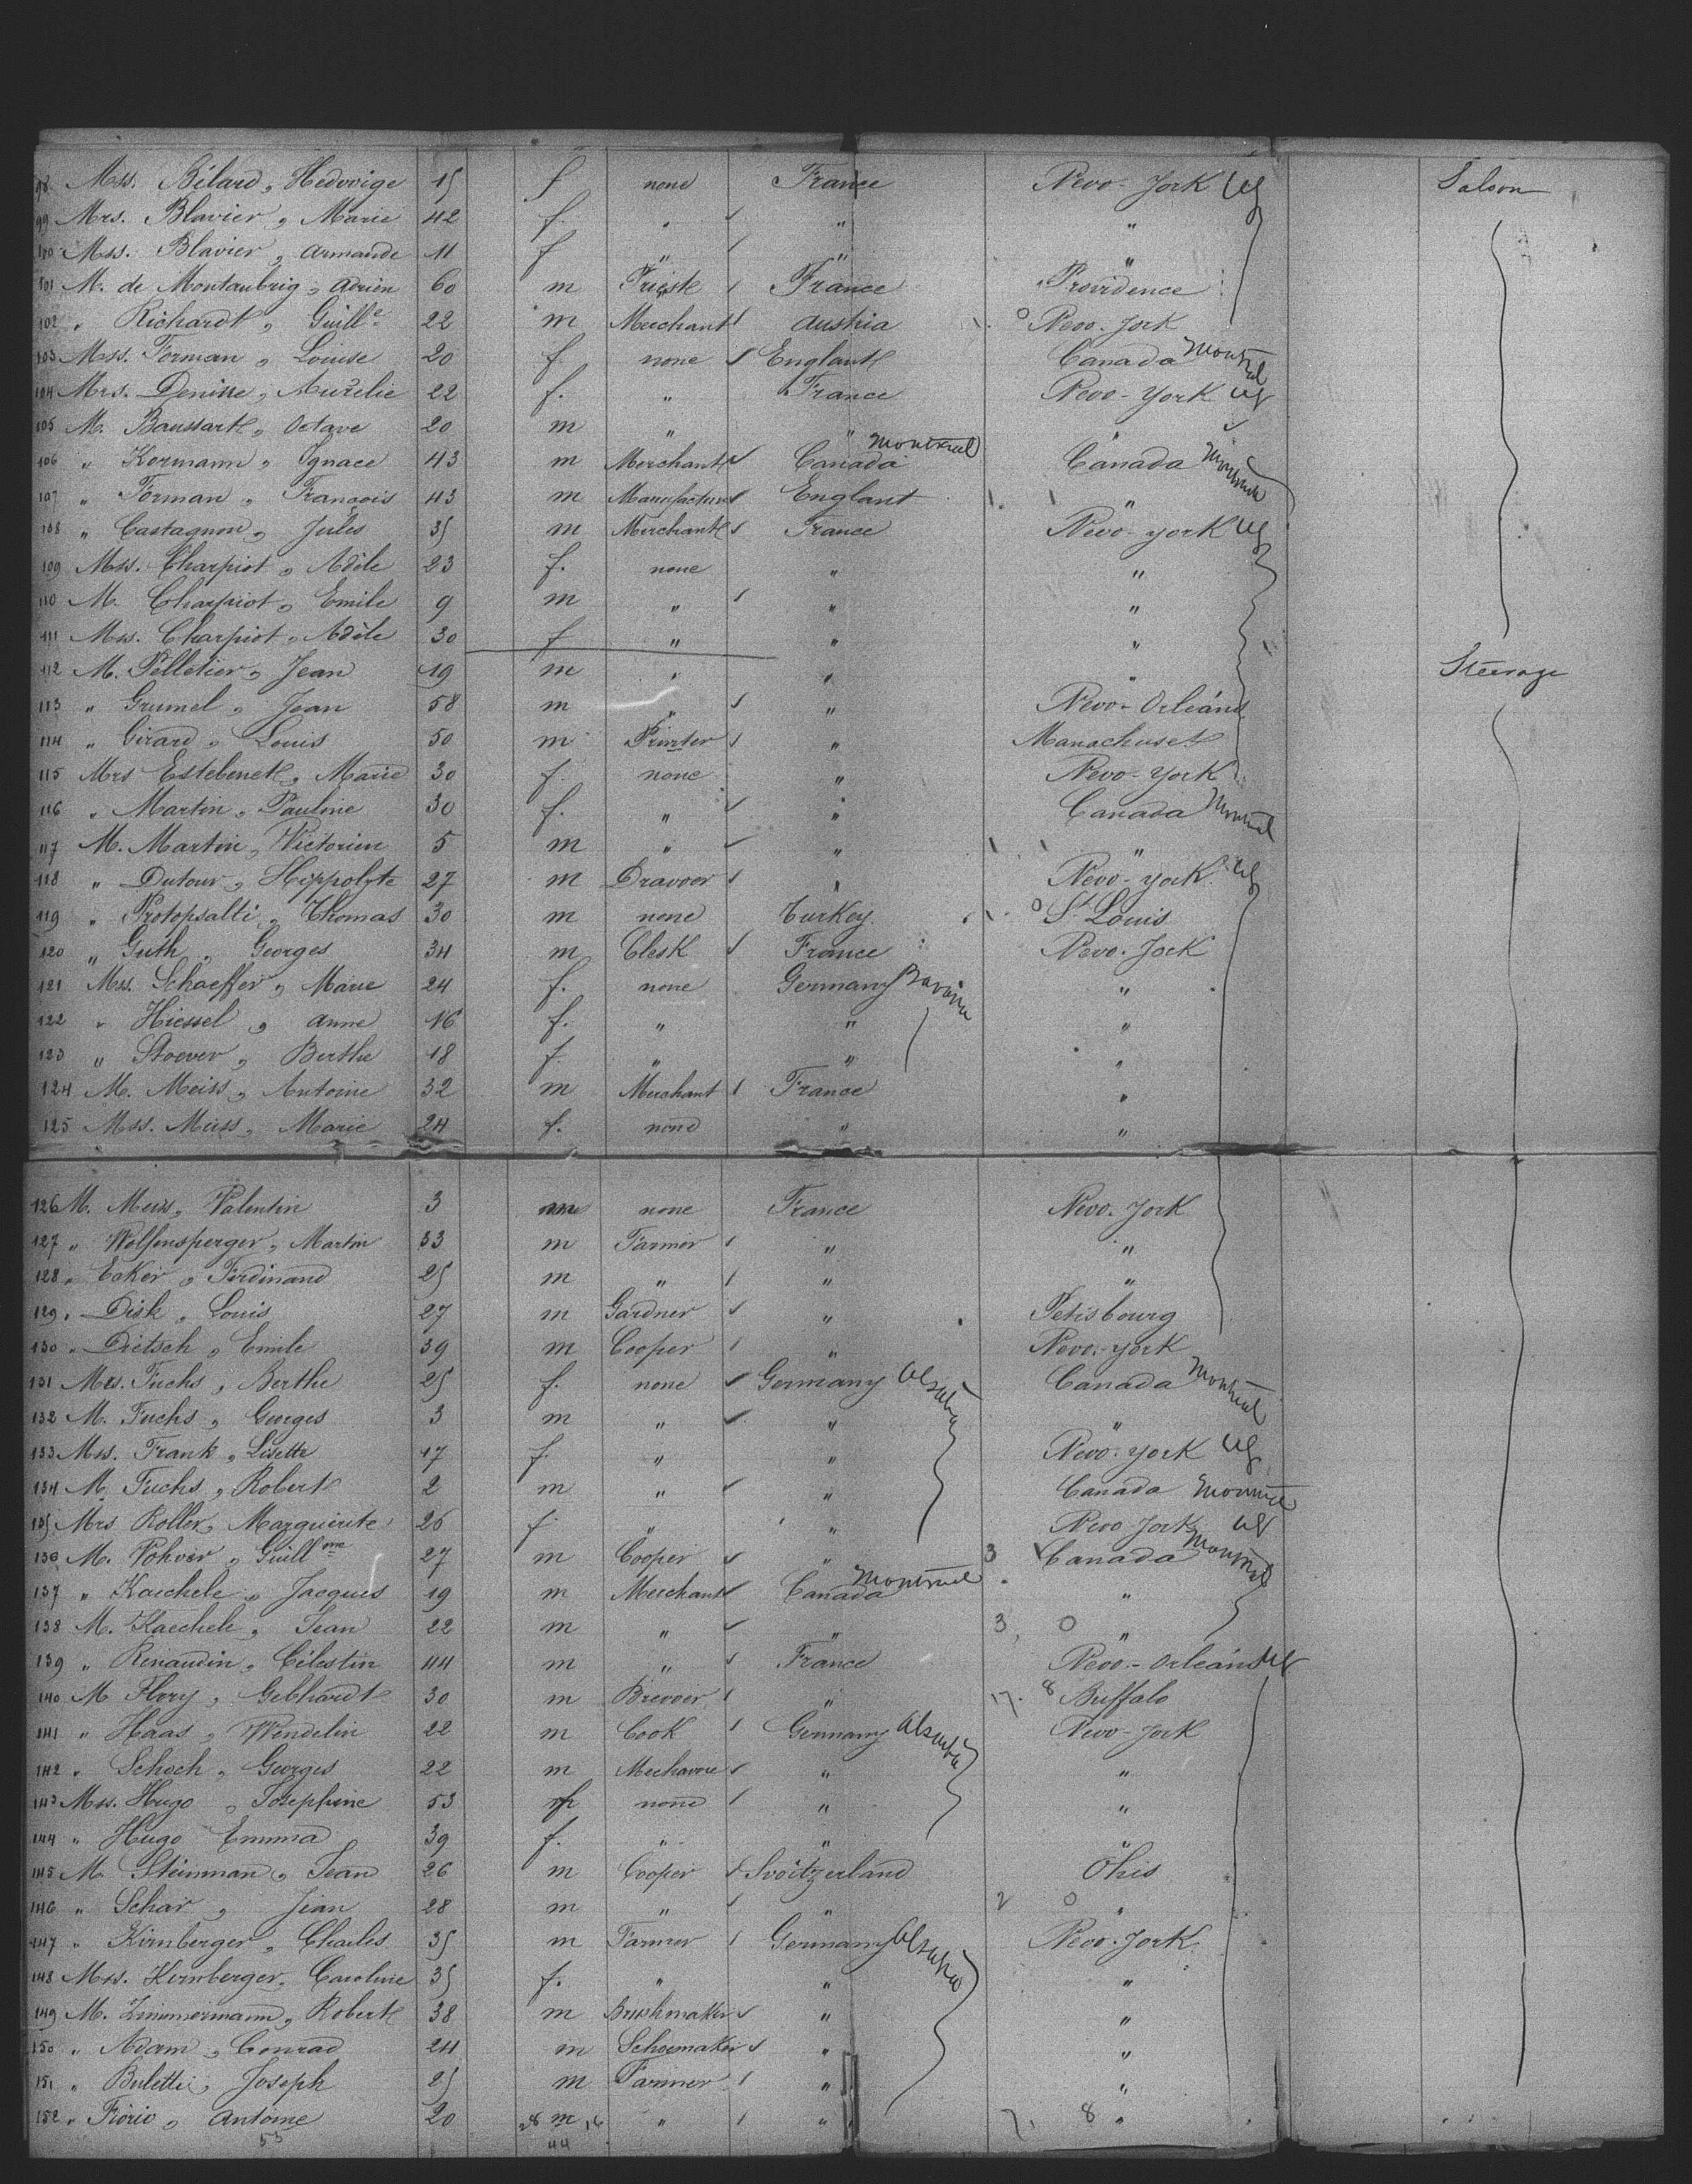 98 Mss. Bélard, Hedwige 15 f none France New-York US Salon
99 Mrs. Blavier, Marie 42 f. " " "
100 Mss. Blavier, Armande 11 f " " "
101 M. de Montaubrig, Adrien 60 m Priest France Providence
102 " Richardt, Guill.e 22 m Merchant Austria New-York
103 Mss. Forman, Louise 20 f. none England Canada Montreal
104 Mrs. Denisse, Aurélie 22 f. " France New-York US
105 M. Baussart, Octave 20 m " " "
106 " Kormann, Ignace 43 m Merchant Canada Montreal Canada Montreal
107 " Forman, François 43 m Manufacturer England "
108 " Castagnon, Jules 35 m Merchant France New-York US
109 Mss. Charpiot, Adèle 23 f. none " "
110 M. Charpiot, Emile 9 m " " "
111 Mss. Charpiot, Adèle 30 f " " "
112 M. Pelletier, Jean 19 m " " " Steerage
113 " Grumel, Jean 58 m " " New-Orléans
114 " Girard, Louis 50 m Printer " Manachuset
115 Mrs Estebenet, Marie 30 f. none " New-York
116 " Martin, Pauline 30 f. " " Canada Montreal
117 M. Martin, Victorien 5 m " " "
118 " Dutour, Hippolyte 27 m Drawer " New-York US
119 " Protopsalti, Thomas 30 m none Turkey St Louis
120 " Guth, Georges 34 m Clerk France New-York
121 Mss. Schaeffer, Marie 24 f. none Germany Bavaria "
122 " Hiessel, Anne 16 f. " " "
123 " Stoever, Berthe 18 f. " " "
124 M. Meiss, Antoine 32 m Merchant France "
125 Mss. Meiss, Marie 24 f. none " "
126 M. Meiss, Valentin 3 m none France New-York
127 " Wolfensperger, Martin 33 m Farmer " "
128 " Ecker, Ferdinand 25 m " " "
129 " Disk, Louis 27 m Gardner " Petisbourg
130 " Dietsch, Emile 39 m Cooper " New-York
131 Mrs. Fuchs, Berthe 25 f. none Germany Alsatia Canada Montreal
132 M. Fuchs, Georges 3 m " " "
133 Mss. Frank, Lisette 17 f. " " New-York US
134 M. Fuchs, Robert 2 m " " Canada Montreal
135 Mrs Roller, Marguerite 26 f " " New York US
136 M. Pohvér, Guillme 27 m Cooper " 3 Canada Montreal
137 " Kaechele, Jacques 19 m Merchant Canada Montreal "
138 M. Kaechele, Jean 22 m " " 3 0 "
139 " Renaudin, Célestin 44 m " France New-Orléans US
140 M Flory, Gebhardt 30 m Brewer " 17. 8 Buffalo
141 " Haas, Wendelin 22 m Cook Germany Alsatia New-York
142 " Schoch, Georges 22 m Mechanic " "
143 Mss. Hugo, Josephine 53 f none " "
144 " Hugo Emma 39 f. " " "
145 M Steinman, Jean 26 m Cooper Switzerland Ohio
146 " Schar, Jean 28 m " " 2 0 "
147 " Kirnberger, Charles 35 m Farmer Germany Alsatia New-York
148 Mss. Kirnberger, Caroline 35 f. " " "
149 M. Zimmermann, Robert 38 m Brushmaker " "
150 " Adam, Conrad 24 m Schoemaker " "
151 " Buletti, Joseph 25 m Farmer " "
152 " Fiorio, Antoine 20 28 m 16 " " 7. 8 "
53 44